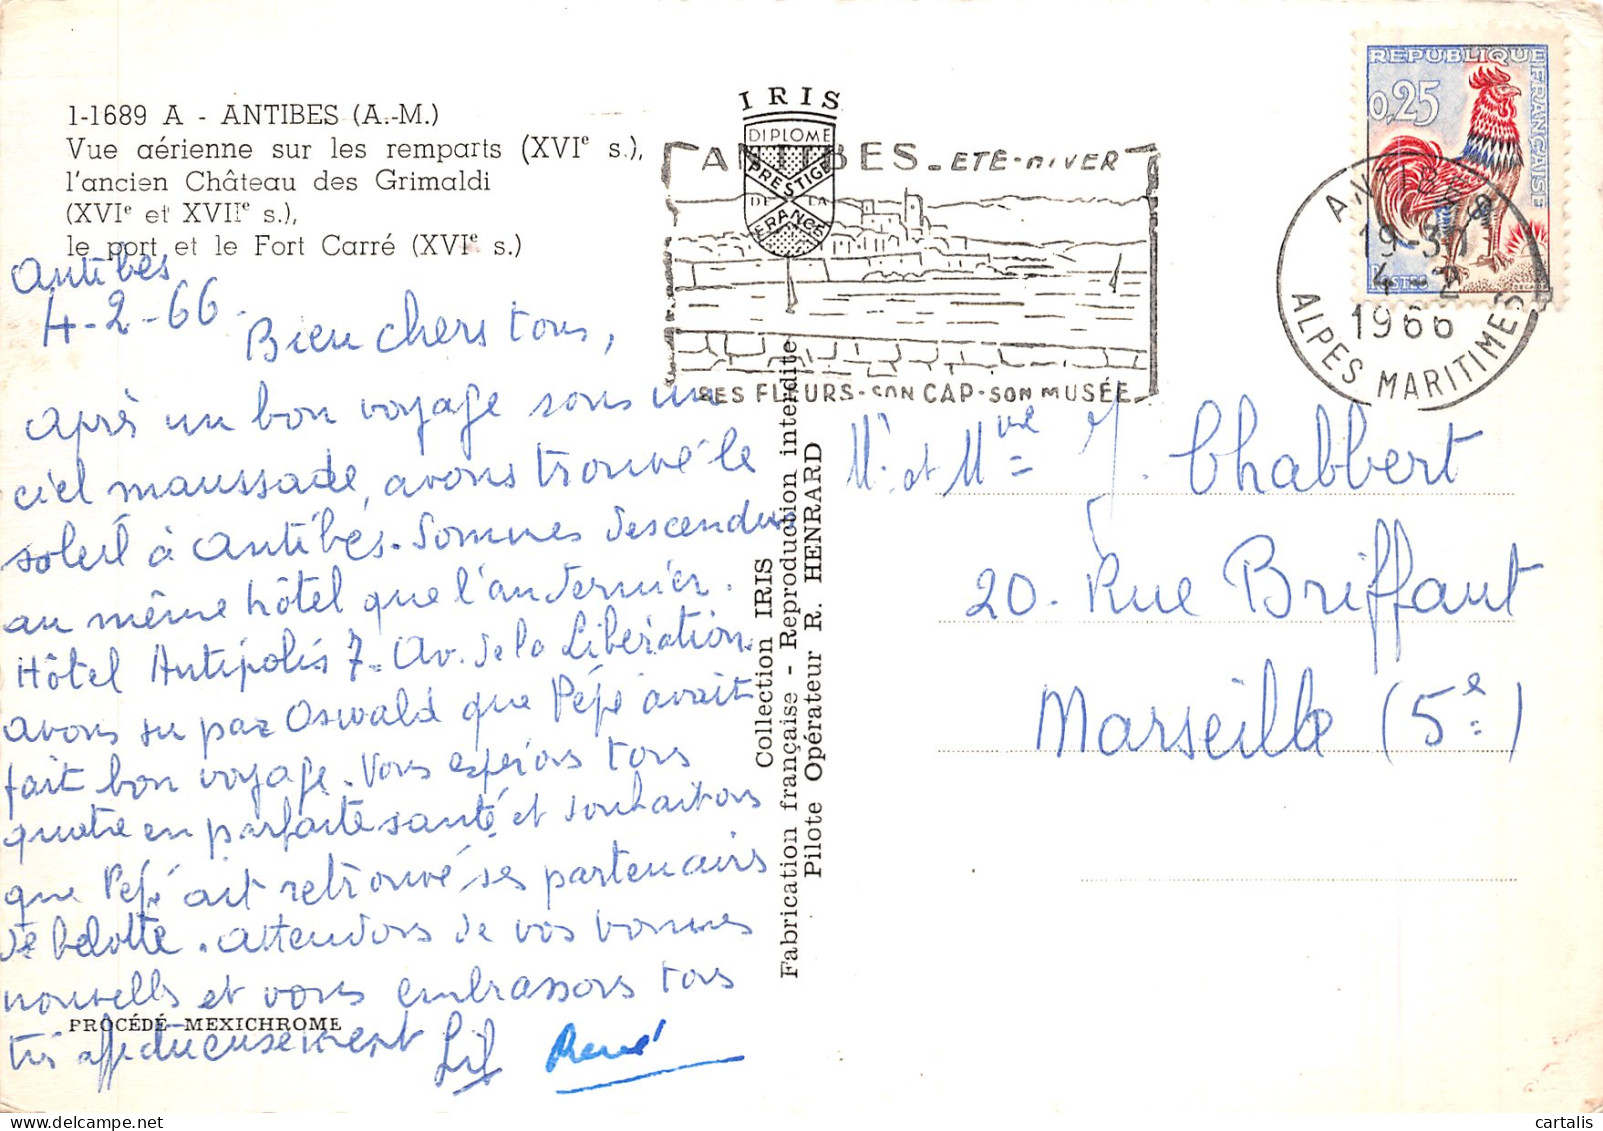 1-1689 A - ANTIBES (A.-M.)
Vue aérienne sur les remparts (XVIe s.),
l'ancien Château des Grimaldi
(XVIe et XVIIe s.),
le port et le Fort Carré (XVIe s.)
Antibes
4-2-66.
Bien chers tous,
Après un bon voyage sous un
ciel maussade, avons trouvé le
soleil à Antibes. Sommes descendus
au même hôtel que l'an dernier.
Hôtel Antipolis 7. Av. de la Libération.
avons su par Oswald que Pépé avait
fait bon voyage. Vous espérons tous
quatre en parfaite santé et souhaitons
que Pépé ait retrouvé ses partenairs
de belotte. Attendons de vos bonnes
nouvelles et vous embrassons tous
PROCÉDÉ MEXICHROME
très affectueusement Lil René
IRIS
DIPLOME
PRESTIGE
DE LA
FRANCE
Collection IRIS
Fabrication française - Reproduction interdite
Pilote Opérateur R. HENRARD
ANTIBES - ETE - HIVER
SES FLEURS - SON CAP - SON MUSÉE
REPUBLIQUE FRANÇAISE
0,25
POSTES
ANTIBES
19-30
4-2
1966
ALPES MARITIMES
Mr. et Mme J. Chabbert
20. Rue Briffaut
Marseille (5e)
cartalis